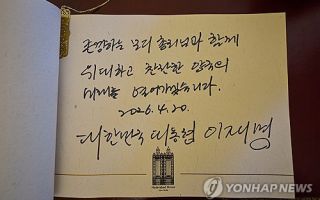 존경하는 모디 총리님과 함께
위대하고 찬란한 양국의
미래를 열어가겠습니다.
2026. 4. 20.
대한민국 대통령 이재명
Hyderabad House
YONHAP NEWS